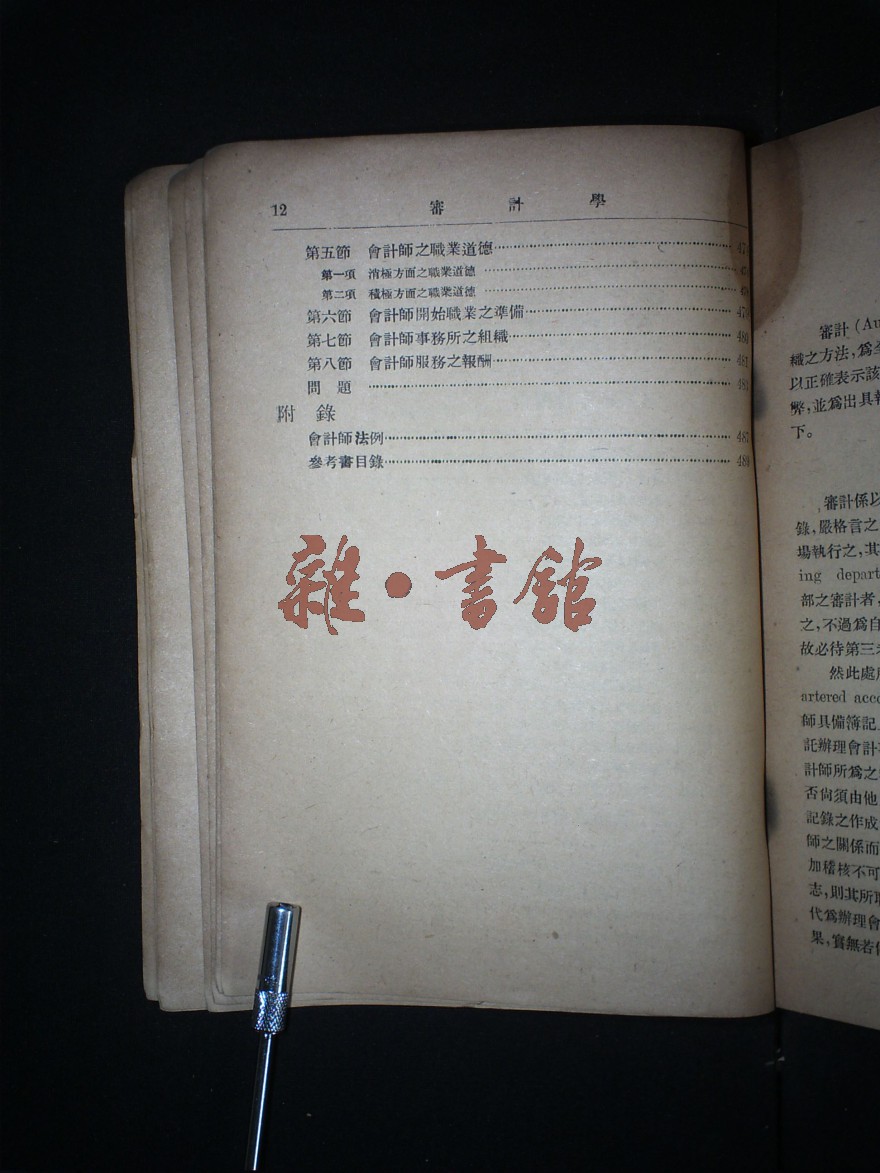 12 審計學
第五節 會計師之職業道德
第一項 消極方面之職業道德
第二項 積極方面之職業道德
第六節 會計師開始職業之準備 479
第七節 會計師事務所之組織 480
第八節 會計師服務之報酬 481
問題
附錄
會計師法例 487
參考書目錄
雜•書館
審計 (Au
織之方法,爲
以正確表示該
弊,並爲出具
下。
審計係以
錄,嚴格言之
場執行之,其
ing depart
部之審計者,
之,不過爲自
故必待第三
然此處
artered acco
師具備簿記
託辦理會計
計師所爲之
否尙須由他
記錄之作成
師之關係而
加稽核不可
志,則其所
代爲辦理會
果,實無若